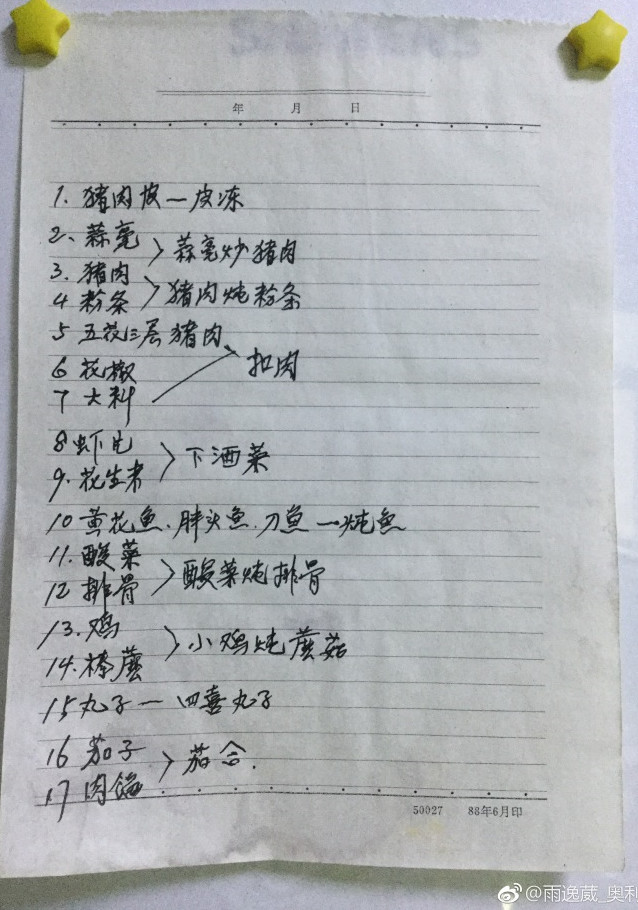 年 月 日
1. 猪肉皮—皮冻
2、蒜毫
> 蒜毫炒猪肉
3. 猪肉
4 粉条
> 猪肉炖粉条
5 五花三层猪肉
6 花椒
7 大料
扣肉
8 虾片
9. 花生米
> 下酒菜
10 黄花鱼、胖头鱼、刀鱼—炖鱼
11. 酸菜
12 排骨
> 酸菜炖排骨
13. 鸡
14. 榛蘑
> 小鸡炖蘑菇
15 丸子— 四喜丸子
16 茄子
17 肉馅
> 茄合.
50027 88年6月印
@雨逸葳_奥利